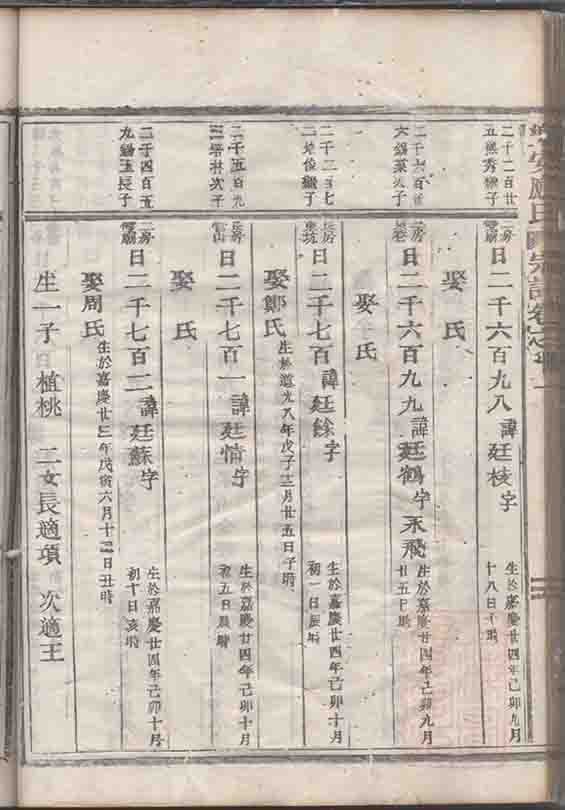 應氏宗譜卷
二千二百廿
五熊秀
子
二房
日二千六百九八 諱廷枝字
生於嘉慶廿四年己卯九月
十八日子時
娶 氏
二千六百
六
子
房
日二千六百九九 諱廷鶴字永飛
生於嘉慶廿四年己卯九月
廿五日 時
娶 氏
二千二百七
二 俊 子
房
坑
日二千七百 諱廷餘字
生於嘉慶廿四年己卯十月
初一日辰時
娶鄭氏
生於道光八年戊子三月廿五日子時
二千五百九
三 林次子
房
山
日二千七百一 諱廷情字
生於嘉慶廿四年己卯十月
初五日辰時
娶 氏
二千四百五
九錫玉長子
二房
日二千七百二 諱廷蘇字
生於嘉慶廿四年己卯十月
初十日亥時
娶周氏
生於嘉慶廿三年戊寅六月十二日丑時
生一子 植桃 二女長適項 次適王